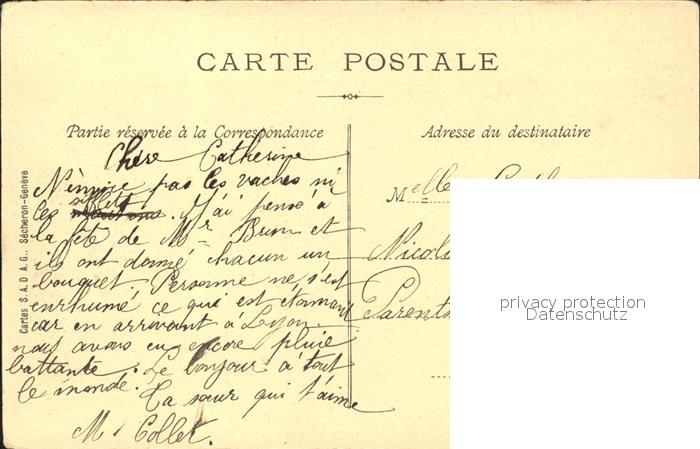 CARTE POSTALE
Partie réservée à la Correspondance
Adresse du destinataire
Chère Catherine
N'ennuie pas les vaches ni
les sifflets. J'ai pensé à
la fête de Mr Brun et
ils ont donné chacun un
bouquet. Personne ne s'est
enrhumé ce qui est étonnant
car en arrivant à Lyon
nous avons eu encore pluie
battante. Le bonjour à tout
le monde.
Ta sœur qui t'aime
M. Collet.
Melle
Nicol
Parent
Cartes S.A.D.A.G., Sécheron-Genève
privacy protection
Datenschutz